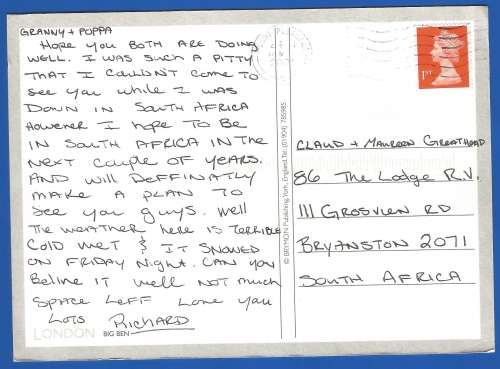 GRANNY + POPPA
HOPE YOU BOTH ARE DOING
WELL. I WAS SUCH A PITTY
THAT I COULDN'T COME TO
SEE YOU WHILE I WAS
DOWN IN SOUTH AFRICA
HOWEVER I HOPE TO BE
IN SOUTH AFRICA IN THE
NEXT COUPLE OF YEARS.
AND WILL DEFFINATLY
MAKE A PLAN TO
SEE YOU GUYS. WELL
THE WEATHER HERE IS TERRIBLE
COLD WET & IT SNOWED
ON FRIDAY NIGHT. CAN YOU
BELIVE IT WELL NOT MUCH
SPACE LEFF LOVE YOU
LOTS RICHARD
LONDON BIG BEN
© BRYMON Publishing, York, England, Tel: (01904) 785985
1ST
CLAUD + MAUREEN GREATHEAD
86 THE LODGE R.V.
111 GROSVIEN RD
BRYANSTON 2071
SOUTH AFRICA